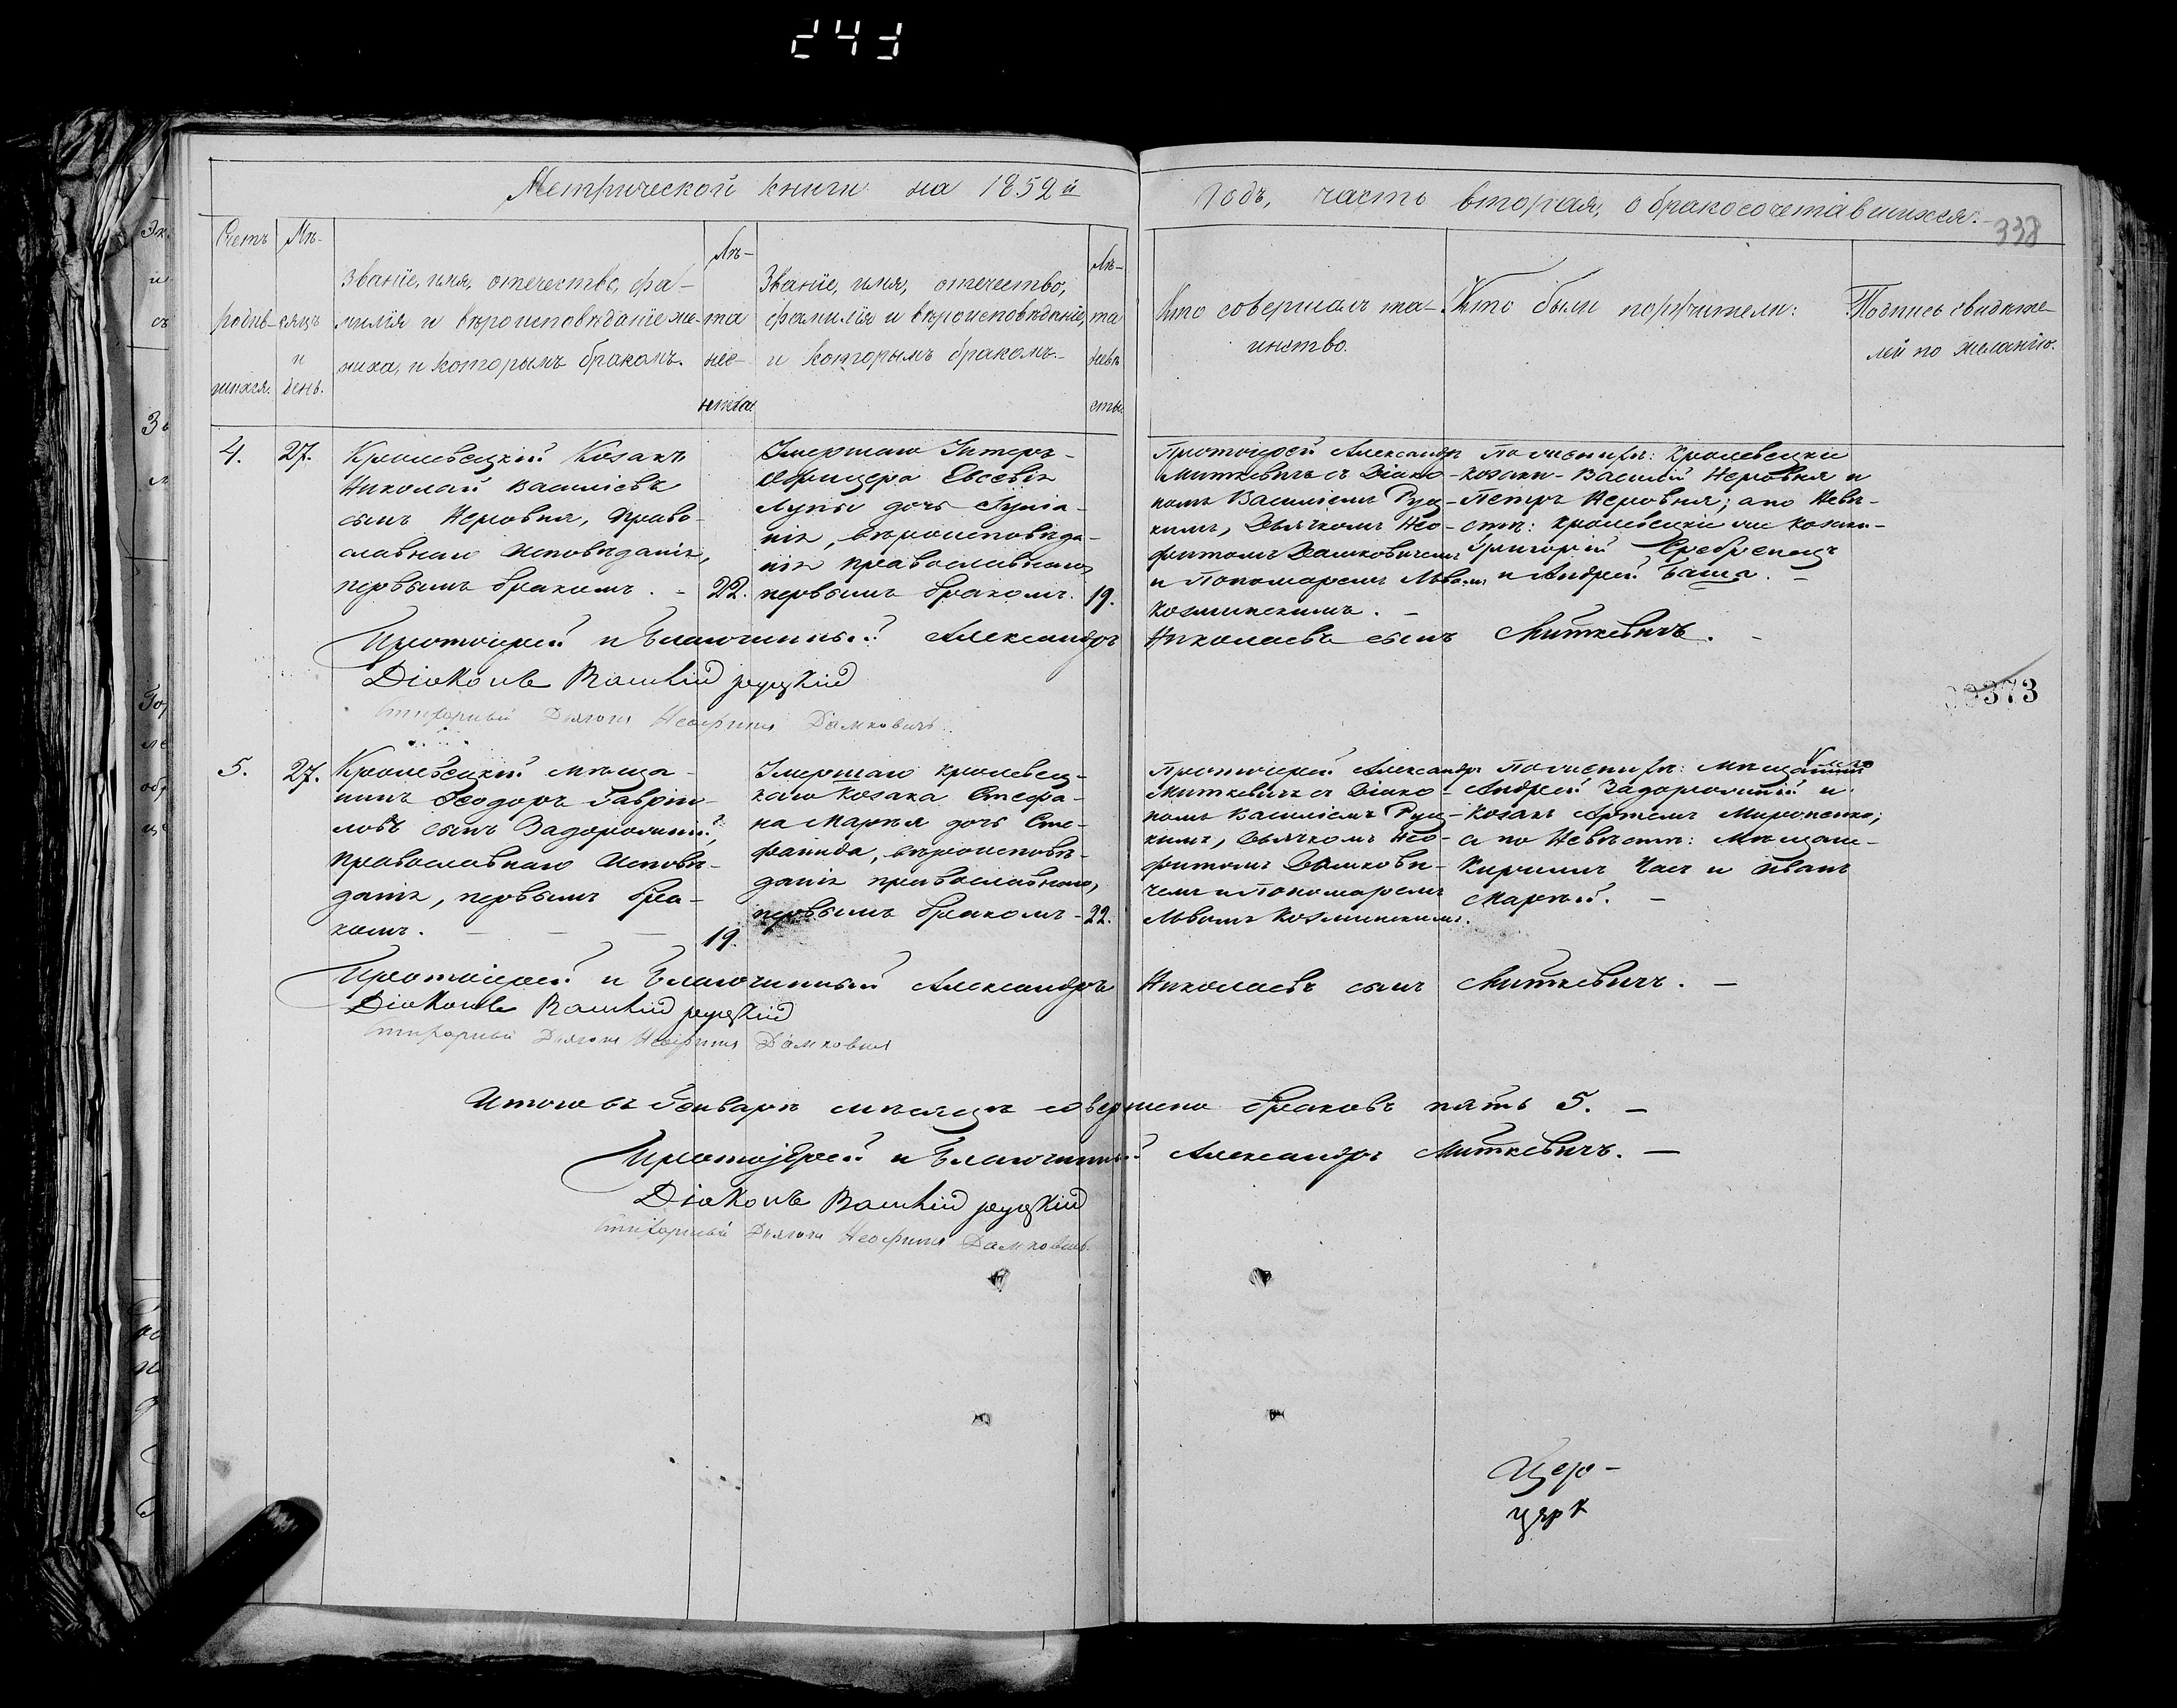 243
Метрической книги на 1859й
Годъ, часть вторая, о бракосочетавшихся.
338
Счетъ
родив-
шихся.
Мѣ-
сяцъ
и
день.
Званіе, имя, отечество, фа-
милія и вѣроисповѣданіе же-
ниха, и которымъ бракомъ.
Лѣ-
та
же-
ниха
Званіе, имя, отечество,
фамилія и вѣроисповѣданіе,
и которымъ бракомъ.
Лѣ-
та
невѣ
сты.
Кто совершалъ та-
инство.
Кто были поручители:
Подпись свидѣте-
лей по желанію.
4.
27.
Кролевецкій Козакъ
Николай Василіевъ
сынъ Неровня, Право-
славнаго Исповѣданія,
первымъ бракомъ. -
22.
Умершаго Унтеръ-
Офицера Евсевія
Лупы дочь
вѣроисповѣда-
нія православнаго,
первымъ бракомъ.
19.
Протоіерей Александръ
Миткевичъ съ Діако-
номъ Василіемъ Руц-
кимъ, Дьячкомъ Нео-
фитомъ Дамковичемъ
и Пономаремъ Львомъ
Козминскимъ. -
По женихѣ: Кролевецкіе
козаки - Василій Неровня и
Петръ Неровня; а по Невѣ-
стѣ: Кролевецкіе же козаки-
Григорій
и Андрей Баша. -
Протоіерей и Благочинный Александръ Николаевъ сынъ Миткевичъ. -
Діаконъ Василій Руцкій
Стихарный Дьячокъ Неофитъ Дамковичъ.
00373
5.
27.
Кролевецкій мѣща-
нинъ Феодоръ Гаврии-
ловъ сынъ Задорожный,
Православнаго Исповѣ-
данія, первымъ бра-
комъ. - - -
19.
Умершаго кролевец-
каго козака Стефа-
на Марзя дочь Сте-
фанида, вѣроисповѣ-
данія православнаго,
первымъ бракомъ -
22.
Протоіерей Александръ
Миткевичъ съ Діако-
номъ Василіемъ Руц-
кимъ, Дьячкомъ Нео-
фитомъ Дамкови-
чемъ и Пономаремъ
Львомъ Козминскимъ.
По женихѣ: Мѣщанинъ
Андрей Задорожный и
Козакъ Артемъ Мироненко;
а по Невѣстѣ: Мѣщане-
Кириллъ Чаи и Иванъ
Марзѣй. -
Протоіерей и Благочинный Александръ Николаевъ сынъ Миткевичъ. -
Діаконъ Василій Руцкій
Стихарный Дьячокъ Неофитъ Дамковичъ
Итого въ Генварѣ мѣсяцѣ совершено браковъ пять 5. -
Протоіерей и Благочинный Александръ Миткевичъ. -
Діаконъ Василій Руцкій
Стихарный Дьячокъ Неофитъ Дамковичъ.